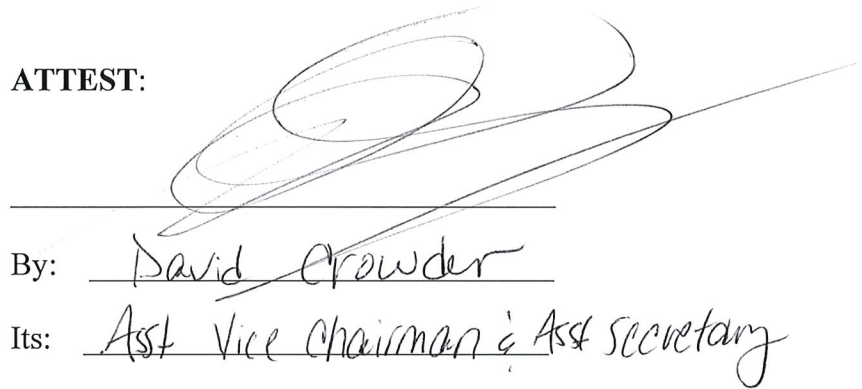 ATTEST:
By: David Crowder
Its: Asst Vice Chairman & Asst Secretary